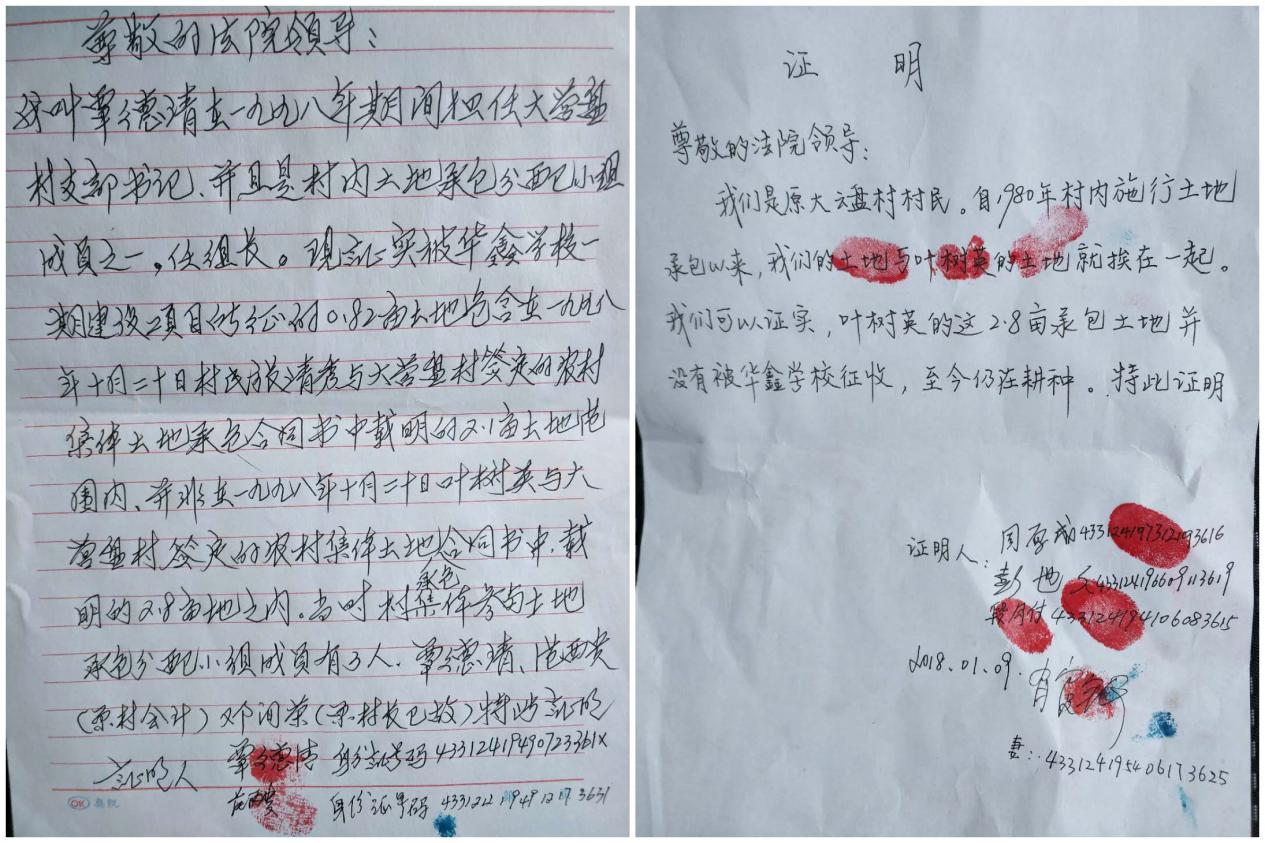 尊敬的法院领导：
我叫覃德清在一九九八年期间担任大营盘
村支部书记、并且是村内土地承包分配小组
成员之一。任组长。现证实被华鑫学校一
期建设项目所征的0.82亩土地包含在一九九八
年十月三十日村民段清秀与大营盘村签定的农村
集体土地承包合同书中载明的2.1亩土地范
围内、并非在一九九八年十月三十日叶树英与大
营盘村签定的农村集体土地承包合同书中.载
明的2.8亩地之内。当时村集体参与土地
承包分配小组成员有3人.覃德清、范西贵
(原村会计)邓润荣(原村长已故)特此证明
证明人 覃德清 身份证号码 43312419490723361X
身份证号码
OK
证 明
尊敬的法院领导：
我们是原大云盘村村民。自1980年村内施行土地
承包以来，我们的土地与叶树英的土地就挨在一起。
我们可以证实，叶树英的这2.8亩承包土地并
没有被华鑫学校征收，至今仍在耕种。特此证明
证明人：433124197312193616
433124196609113619
433124194106083615
2018.01.09.
妻：433124195406173625